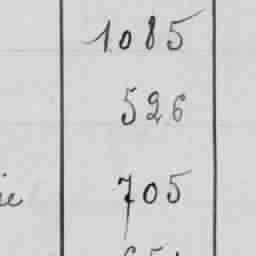 1085
526
705